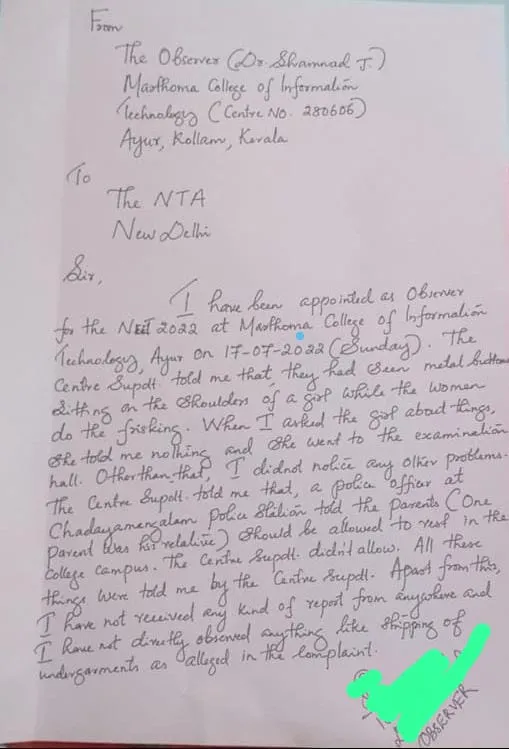 From
The Observer (Dr. Shamnad J.)
Marthoma College of Information
Technology (Centre No. 280606)
Ayur, Kollam, Kerala
To
The NTA
New Delhi
Sir,
I have been appointed as Observer
for the NEET 2022 at Marthoma College of Information
Technology, Ayur on 17-07-2022 (Sunday). The
Centre Supdt. told me that, they had seen metal buttons
sitting on the shoulders of a girl while the women
do the frisking. When I asked the girl about things,
she told me nothing and she went to the examination
hall. Other than that, I didnot notice any other problems.
The Centre Supdt. told me that, a police officer at
Chadayamengalam Police Station told the Parents (One
parent was his relative) should be allowed to rest in the
college campus. The Centre Supdt. didn't allow. All these
things were told me by the Centre Supdt. Apart from this,
I have not received any kind of report from anywhere and
I have not directly observed anything like stripping of
undergarments as alleged in the complaint.
OBSERVER